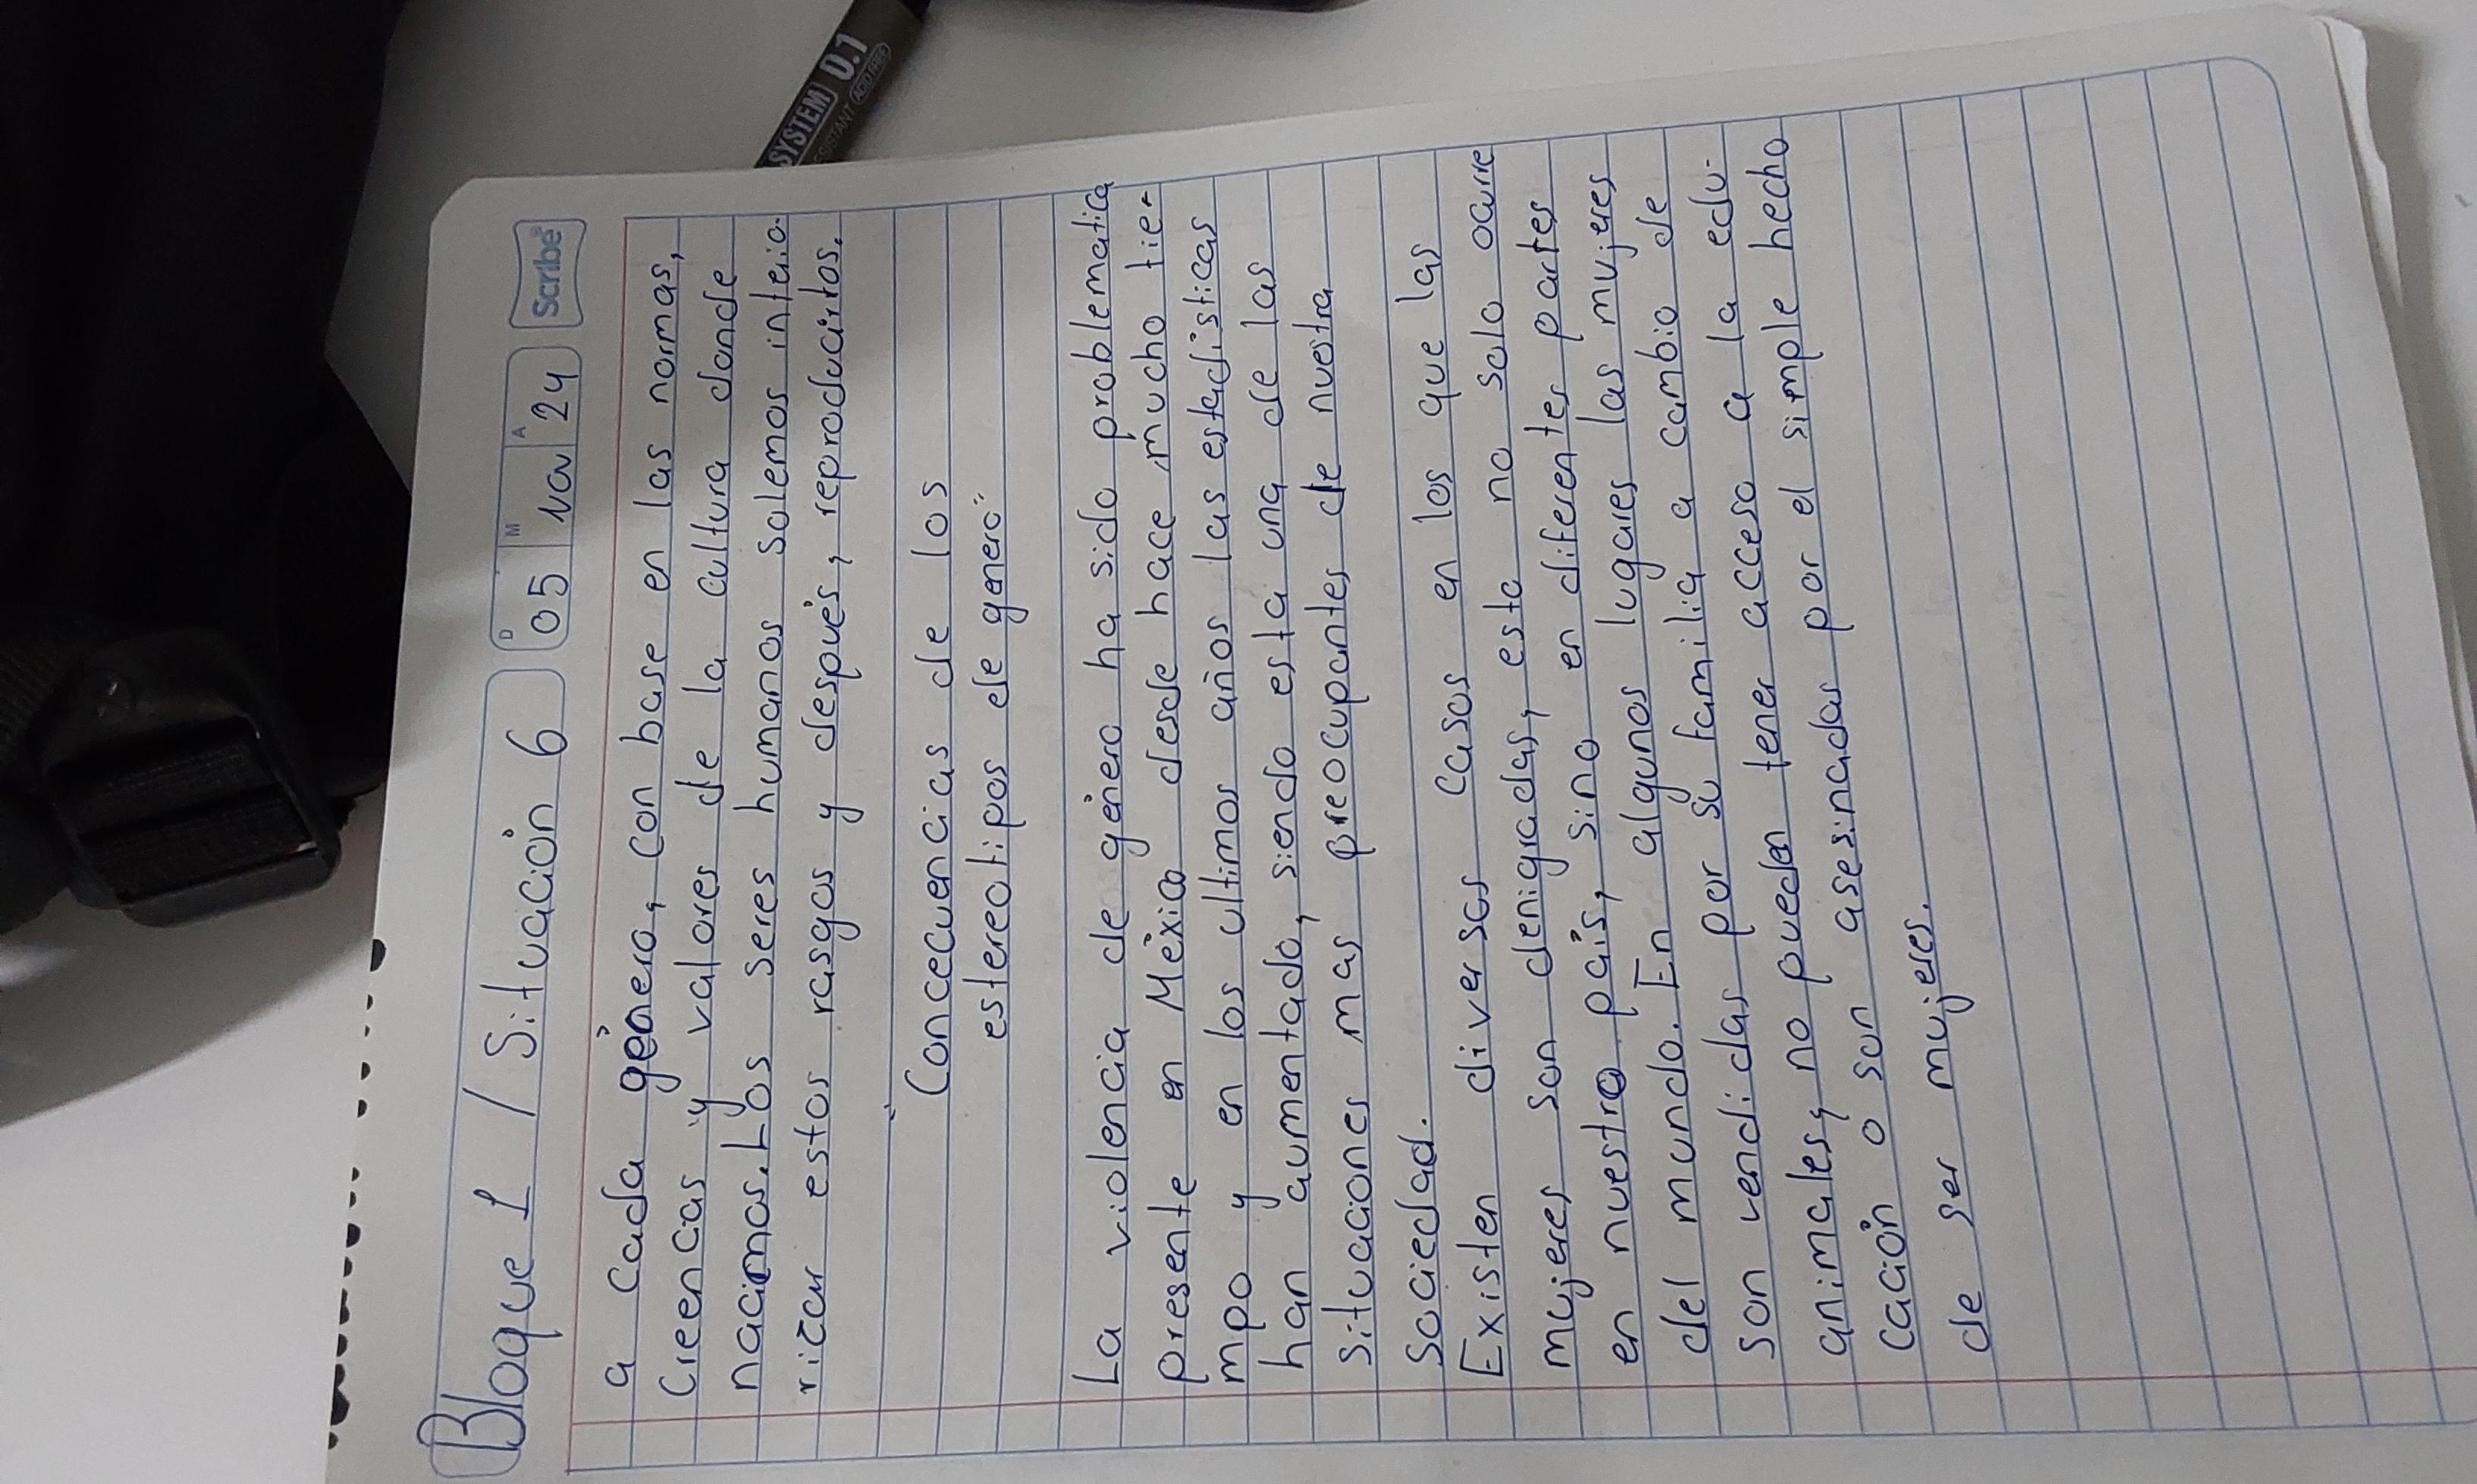 Bloque 1 / Situación 6
D M A
05 Nov 24
Scribe
a cada género, con base en las normas,
creencias y valores de la cultura donde
nacimos. Los seres humanos solemos interio-
rizar estos rasgos y después, reproducirlos.
"Concecuencias de los
estereotipos de genero"
La violencia de género ha sido problematica
presente en México desde hace mucho tie-
mpo y en los ultimos años las estadísticas
han aumentado, siendo esta una de las
situaciones mas preocupantes de nuestra
sociedad.
Existen diversos casos en los que las
mujeres son denigradas, esto no solo ocurre
en nuestro país, sino en diferentes partes
del mundo. En algunos lugares las mujeres
son vendidas por su familia a cambio de
animales, no pueden tener acceso a la edu-
cación o son asesinadas por el simple hecho
de ser mujeres.
SYSTEM 0.1
ACID FREE